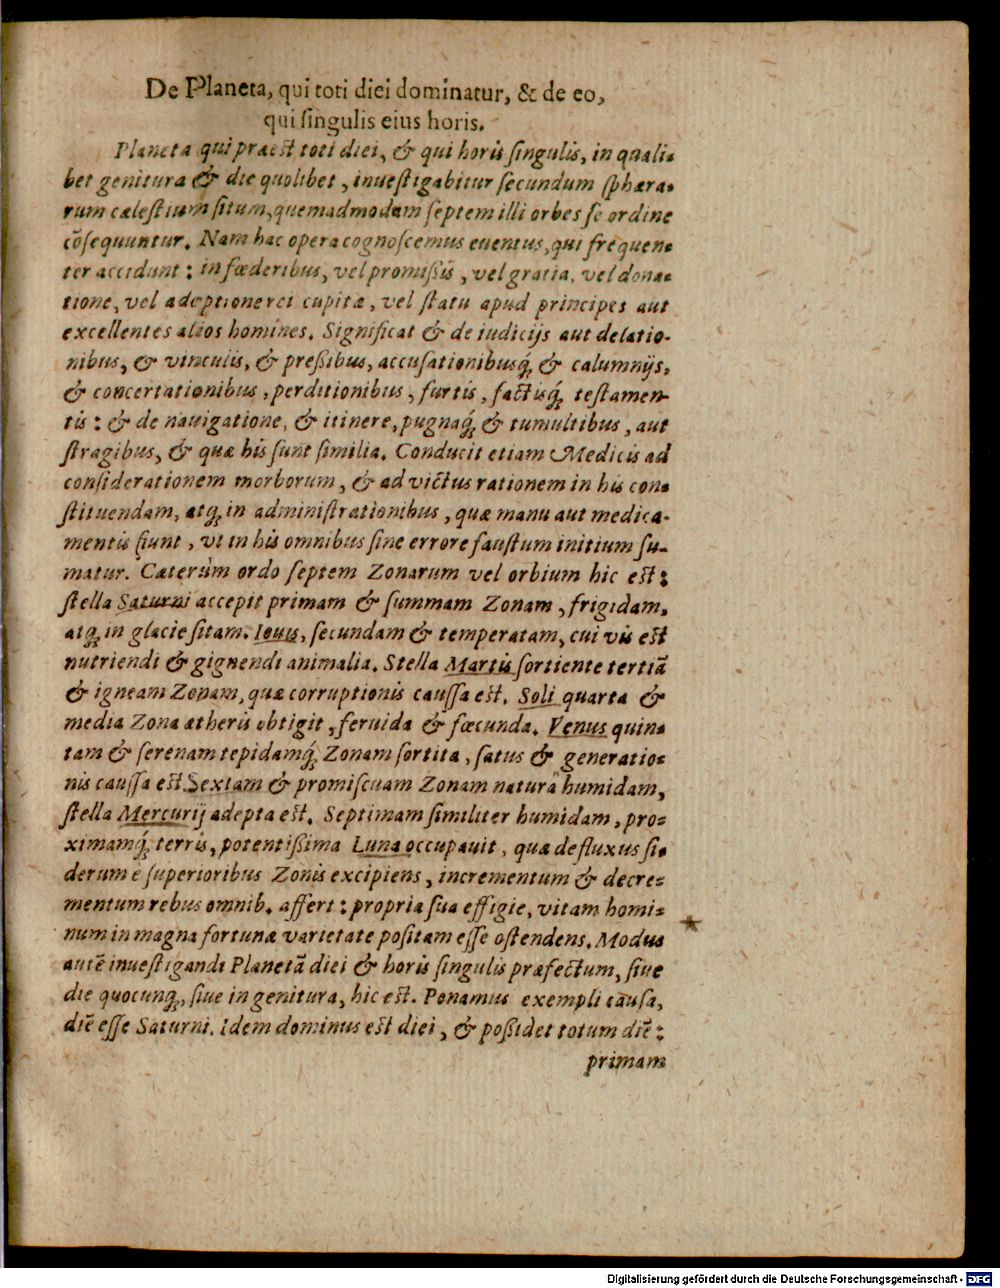 De Planeta, qui toti diei dominatur, & de eo,
qui ſingulis eius horis.
Planeta qui præest toti diei, & qui horis ſingulis, in quali-
bet genitura & die quolibet, inueſtigabitur ſecundum ſphæra-
rum cæleſtium ſitum, quemadmodum ſeptem illi orbes ſe ordine
cōſequuntur. Nam hac opera cognoſcemus euentus, qui frequen-
ter accidunt: in fœderibus, vel promiſſis, vel gratia, vel dona-
tione, vel adeptione rei cupitæ, vel ſtatu apud principes aut
excellentes alios homines. Significat & de iudicijs aut delatio-
nibus, & vinculis, & preſſibus, accuſationibusq́, & calumnijs,
& concertationibus, perditionibus, furtis, factisq́, teſtamen-
tis: & de nauigatione, & itinere, pugnaq́, & tumultibus, aut
ſtragibus, & quæ his ſunt ſimilia. Conducit etiam Medicis ad
conſiderationem morborum, & ad victus rationem in his con-
ſtituendam, atq, in adminiſtrationibus, quæ manu aut medica-
mentis fiunt, vt in his omnibus ſine errore fauſtum initium ſu-
matur. Cæterùm ordo ſeptem Zonarum vel orbium hic est:
ſtella Saturni accepit primam & ſummam Zonam, frigidam,
atq, in glacie ſitam. Iouis, ſecundam & temperatam, cui vis est
nutriendi & gignendi animalia. Stella Martis ſortiente tertiā
& igneam Zonam, quæ corruptionis cauſſa est. Soli quarta &
media Zona ætheris obtigit, feruida & fœcunda. Venus quin-
tam & ſerenam tepidamq́, Zonam ſortita, ſatus & generatio-
nis cauſſa est. Sextam & promiſcuam Zonam natura humidam,
ſtella Mercurij adepta est. Septimam ſimiliter humidam, pro-
ximamq́, terris, potentiſſima Luna occupauit, quæ defluxus ſi-
derum è ſuperioribus Zonis excipiens, incrementum & decre-
mentum rebus omnib. affert: propria ſua effigie, vitam homi-
num in magna fortunæ varietate poſitam eſſe oſtendens. Modus
autē inueſtigandi Planetā diei & horis ſingulis præfectum, ſiue
die quocunq, ſiue in genitura, hic est. Ponamus exempli cauſa,
diē eſſe Saturni. Idem dominus est diei, & poſſidet totum diē:
primam
Digitalisierung gefördert durch die Deutsche Forschungsgemeinschaft - DFG